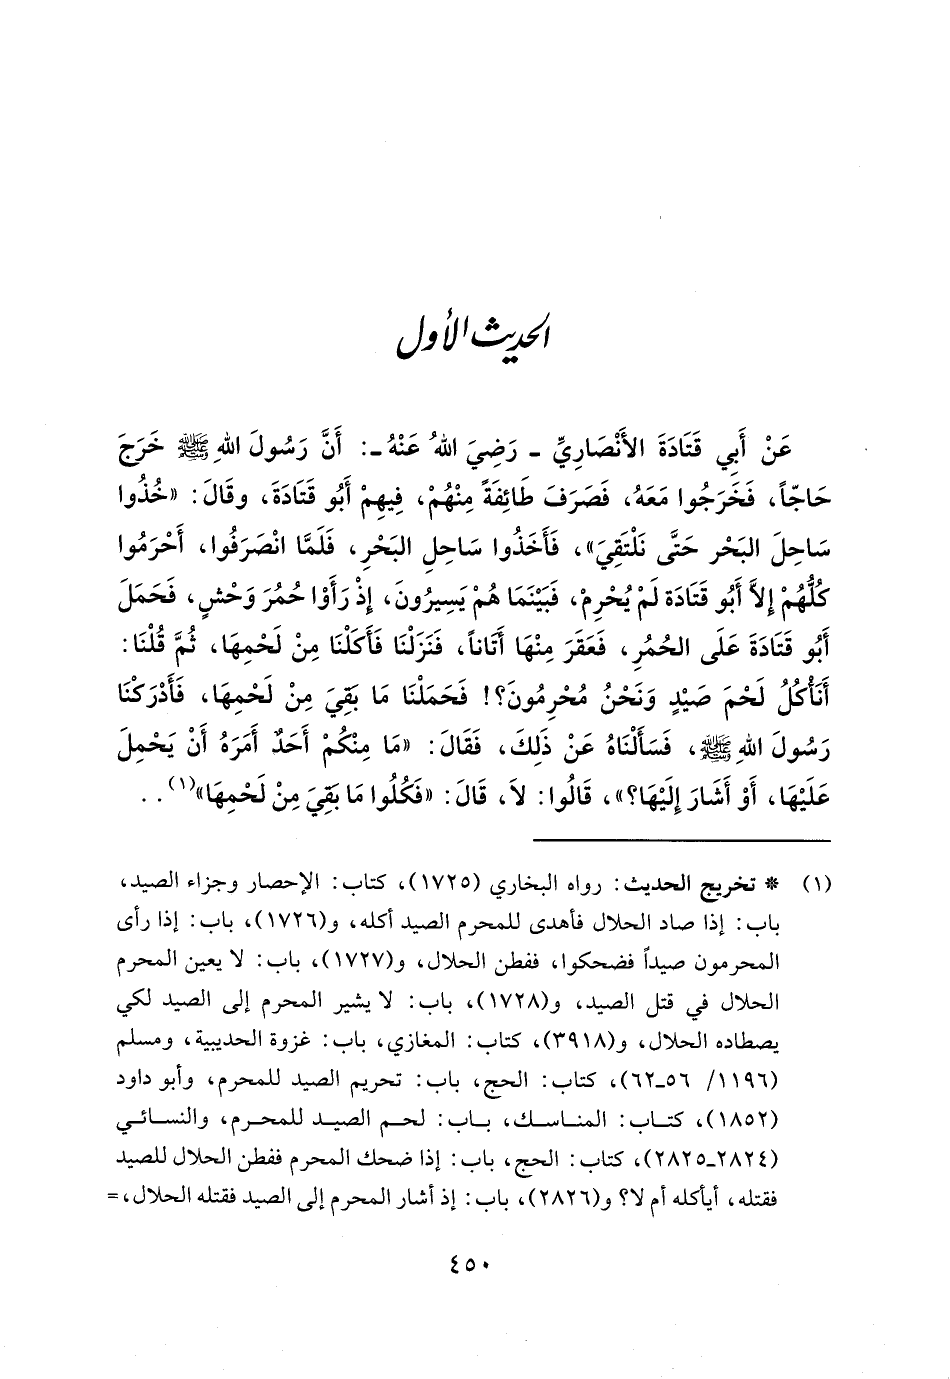 الحديث الأول
عَنْ أَبِي قَتَادَةَ الأَنْصَارِيِّ - رَضِيَ اللهُ عَنْهُ -: أَنَّ رَسُولَ اللهِ ﷺ خَرَجَ
حَاجّاً، فَخَرَجُوا مَعَهُ، فَصَرَفَ طَائِفَةً مِنْهُمْ، فِيهِمْ أَبُو قَتَادَةَ، وقَالَ: «خُذُوا
سَاحِلَ البَحْرِ حَتَّى نَلْتَقِيَ»، فَأَخَذُوا سَاحِلِ البَحْرِ، فَلَمَّا انْصَرَفُوا، أَحْرَمُوا
كُلُّهُمْ إِلاَّ أَبُو قَتَادَة لَمْ يُحْرِمْ، فَبَيْنَمَا هُمْ يَسِيرُونَ، إِذْ رَأَوْا حُمُرَ وَحْشٍ، فَحَمَلَ
أَبُو قَتَادَةَ عَلَى الحُمُرِ، فَعَقَرَ مِنْهَا أَتَاناً، فَنَزَلْنَا فَأَكَلْنَا مِنْ لَحْمِهَا، ثُمَّ قُلْنَا:
أَنَأْكُلُ لَحْمَ صَيْدٍ وَنَحْنُ مُحْرِمُونَ؟! فَحَمَلْنَا مَا بَقِيَ مِنْ لَحْمِهَا، فَأَدْرَكْنَا
رَسُولَ اللهِ ﷺ، فَسَأَلْنَاهُ عَنْ ذَلِكَ، فَقَالَ: «مَا مِنْكُمْ أَحَدٌ أَمَرَهُ أَنْ يَحْمِلَ
عَلَيْهَا، أَوْ أَشَارَ إِلَيْهَا؟»، قَالُوا: لاَ، قَالَ: «فَكُلُوا مَا بَقِيَ مِنْ لَحْمِهَا»(١) . .
(١) * تخريج الحديث: رواه البخاري (١٧٢٥)، كتاب: الإحصار وجزاء الصيد،
باب: إذا صاد الحلال فأهدى للمحرم الصيد أكله، و(١٧٢٦)، باب: إذا رأى
المحرمون صيداً فضحكوا، ففطن الحلال، و(١٧٢٧)، باب: لا يعين المحرم
الحلال في قتل الصيد، و(١٧٢٨)، باب: لا يشير المحرم إلى الصيد لكي
يصطاده الحلال، و(٣٩١٨)، كتاب: المغازي، باب: غزوة الحديبية، ومسلم
(١١٩٦/ ٥٦-٦٢)، كتاب: الحج، باب: تحريم الصيد للمحرم، وأبو داود
(١٨٥٢)، كتاب: المناسك، باب: لحم الصيد للمحرم، والنسائي
(٢٨٢٤-٢٨٢٥)، كتاب: الحج، باب: إذا ضحك المحرم ففطن الحلال للصيد
فقتله، أيأكله أم لا؟ و(٢٨٢٦)، باب: إذ أشار المحرم إلى الصيد فقتله الحلال، =
٤٥٠